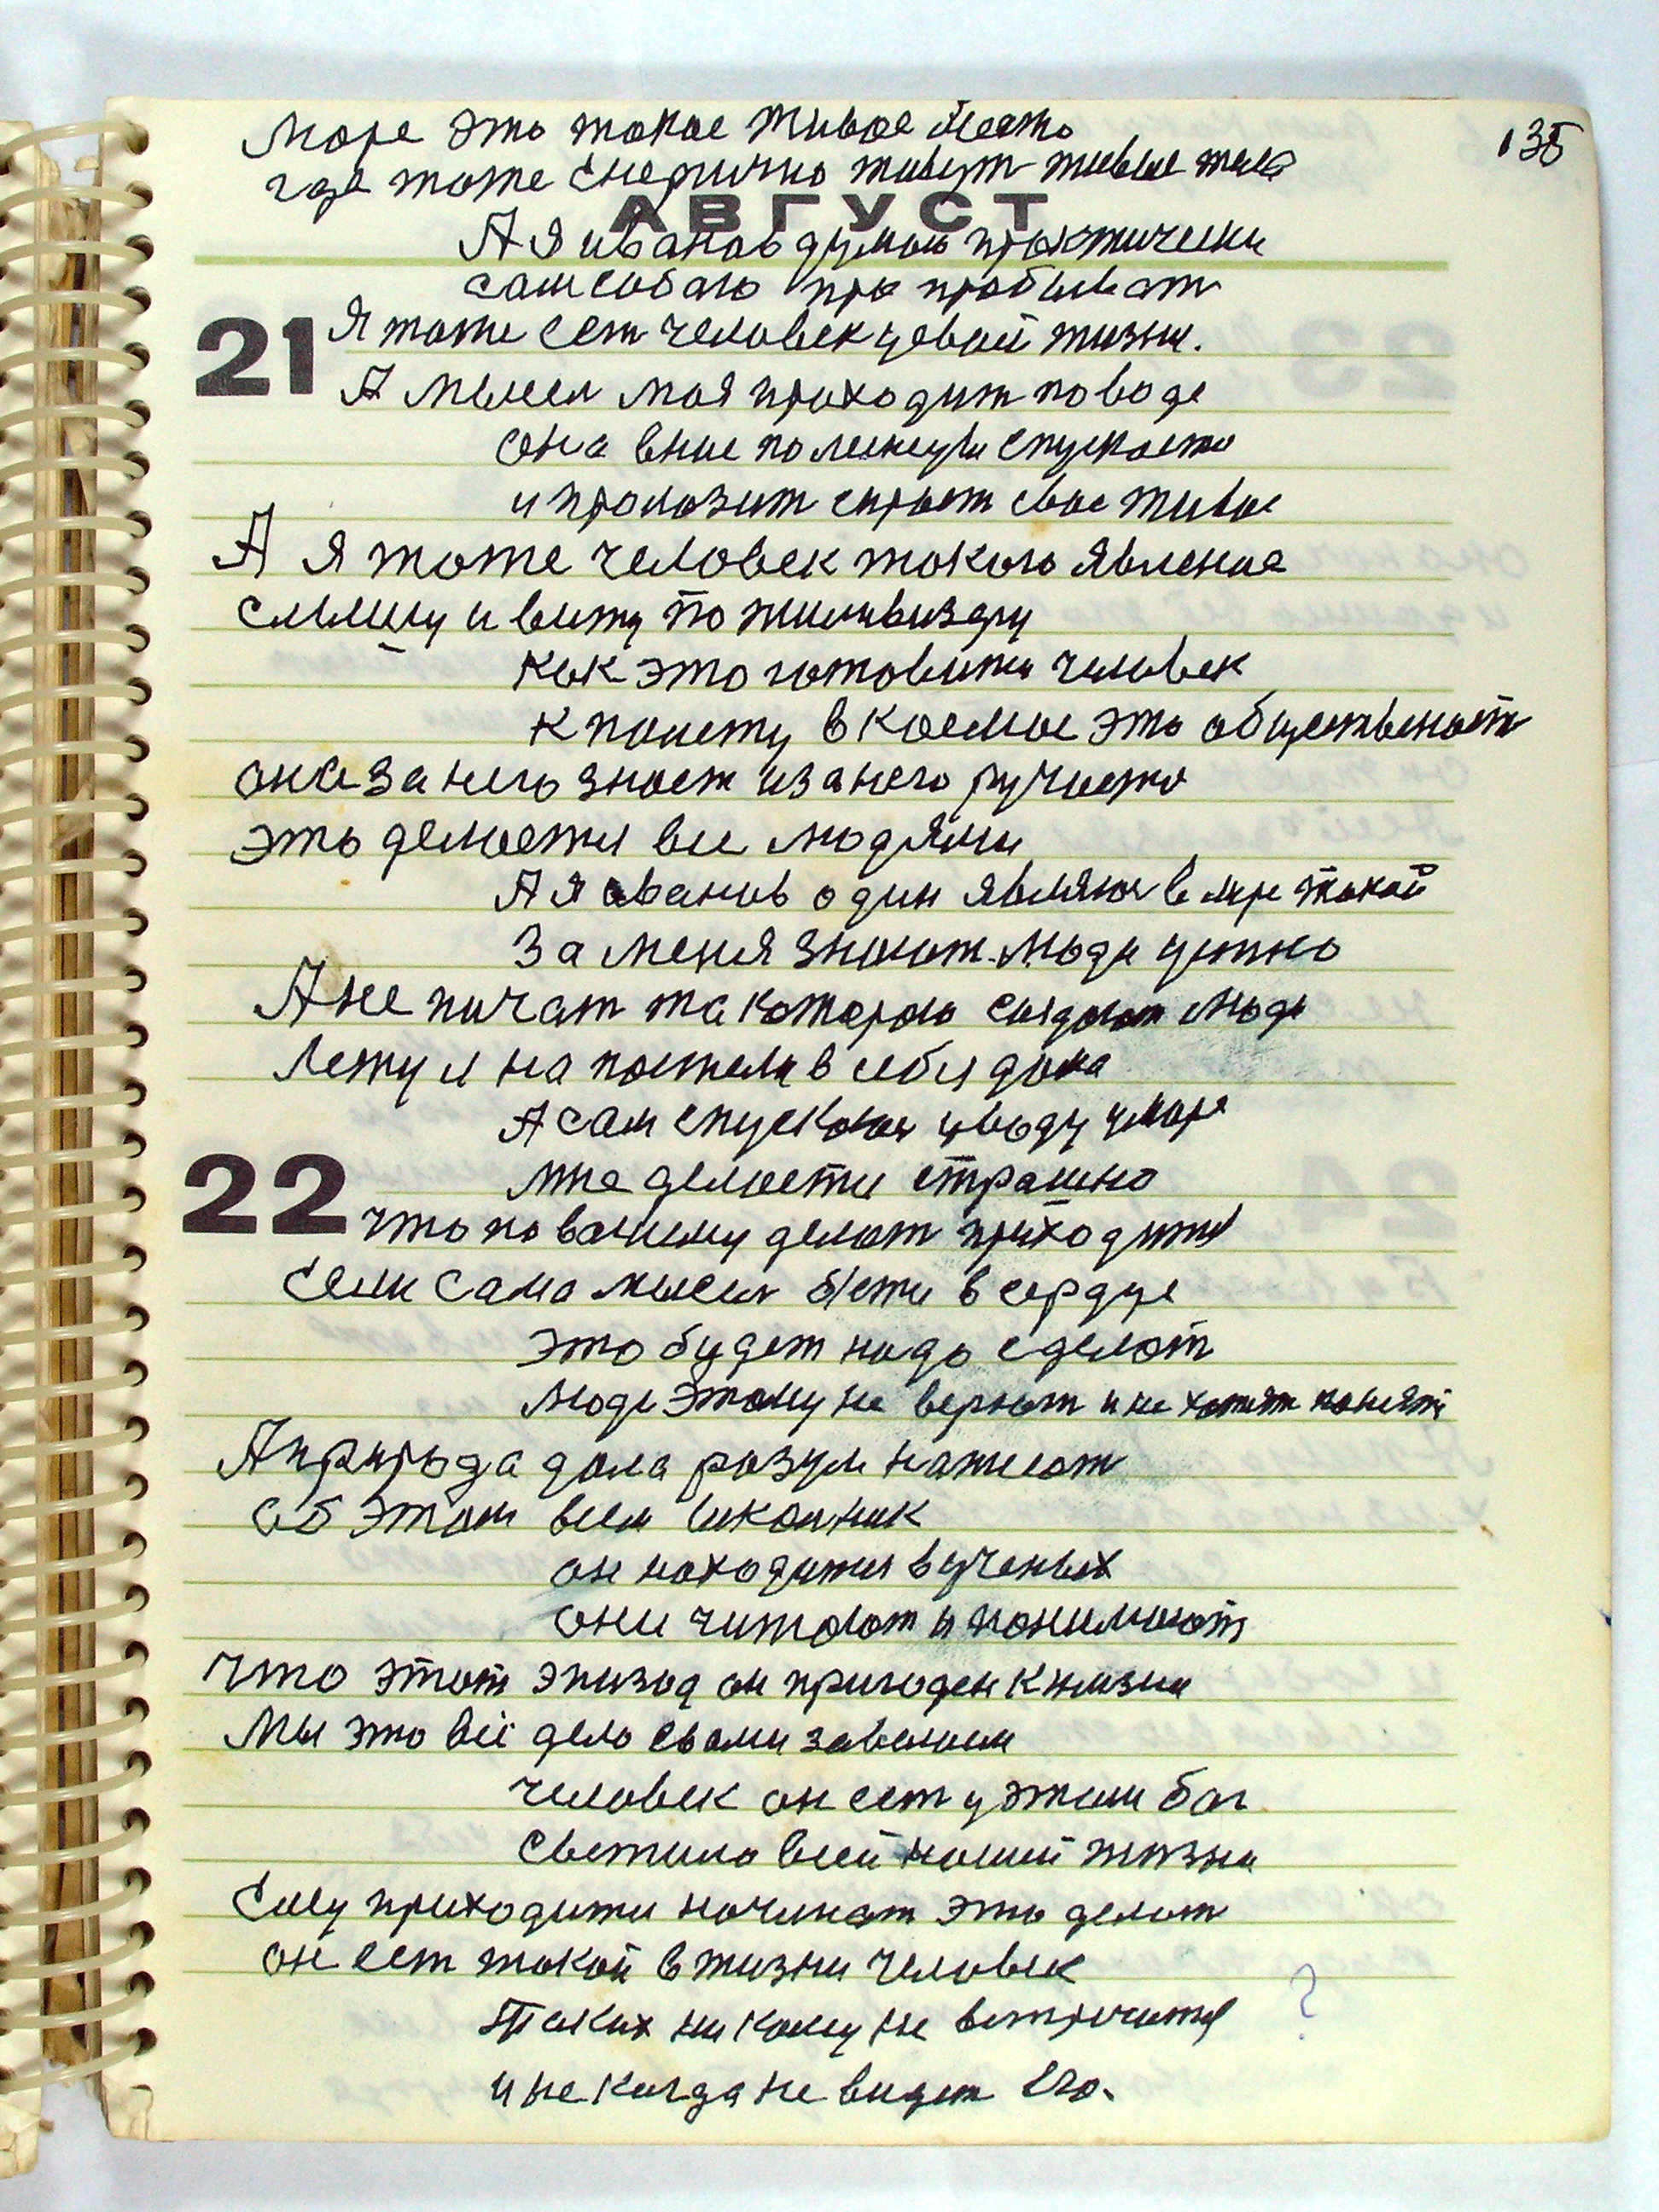 135
Море это такое живое место
где тоже енергично живут живые тела
АВГУСТ
А я иванов думаю практически
сам собаю пробыват
21
Я тоже ест человек цевай жизни.
А мысел моя приходит по воде
она вние полегнули спускается
и проползит сирает свае живае
А я тоже человек такого явление
слышу и вижу по тиливизеру
как это готовится человек
к палету в космос это общественаст
она за него знает и за него ручается
это делается все людями
А я иванов один являюс в мире такой
За меня знают люди детко
А не пичат та которою создают люди
Лежу я на постели в себя дома
А сам спускаюс у воду у море
мне делается страшно
22
что по вашему делат приходится
Если сама мысел бется в сердце
это будет надо сделат
люди этому не верят и не хотят понят
А природа дала разум написат
об этом всем
он находится в ученых
они читают и понимают
что этот эпизод он пригоден к жизни
Мы это всё дело своими завоюем
человек он ест у этом бог
светило всей нашей жизни
Ему приходится начинат это делат
он ест такой в жизни человек
Таких ни кому не встричатся
и не когда не видет его.
?